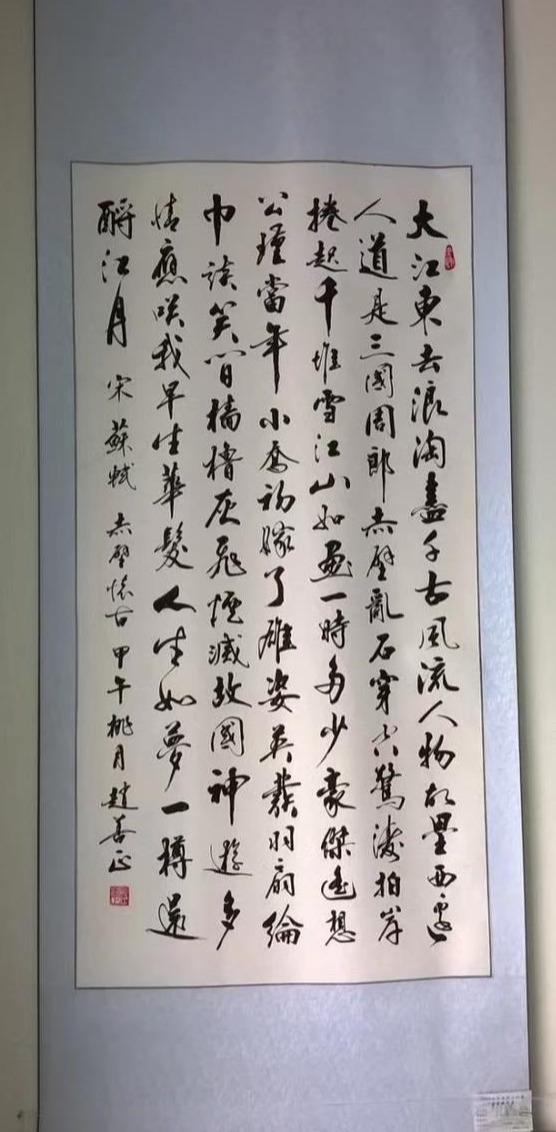 大江東去浪淘盡千古風流人物故壘西邊
人道是三國周郎赤壁亂石穿空驚濤拍岸
捲起千堆雪江山如畫一時多少豪傑遙想
公瑾當年小喬初嫁了雄姿英發羽扇綸
巾談笑間檣櫓灰飛煙滅故國神遊多
情應咲我早生華髮人生如夢一樽還
酹江月 宋蘇軾 赤壁懷古 甲午桃月趙善正